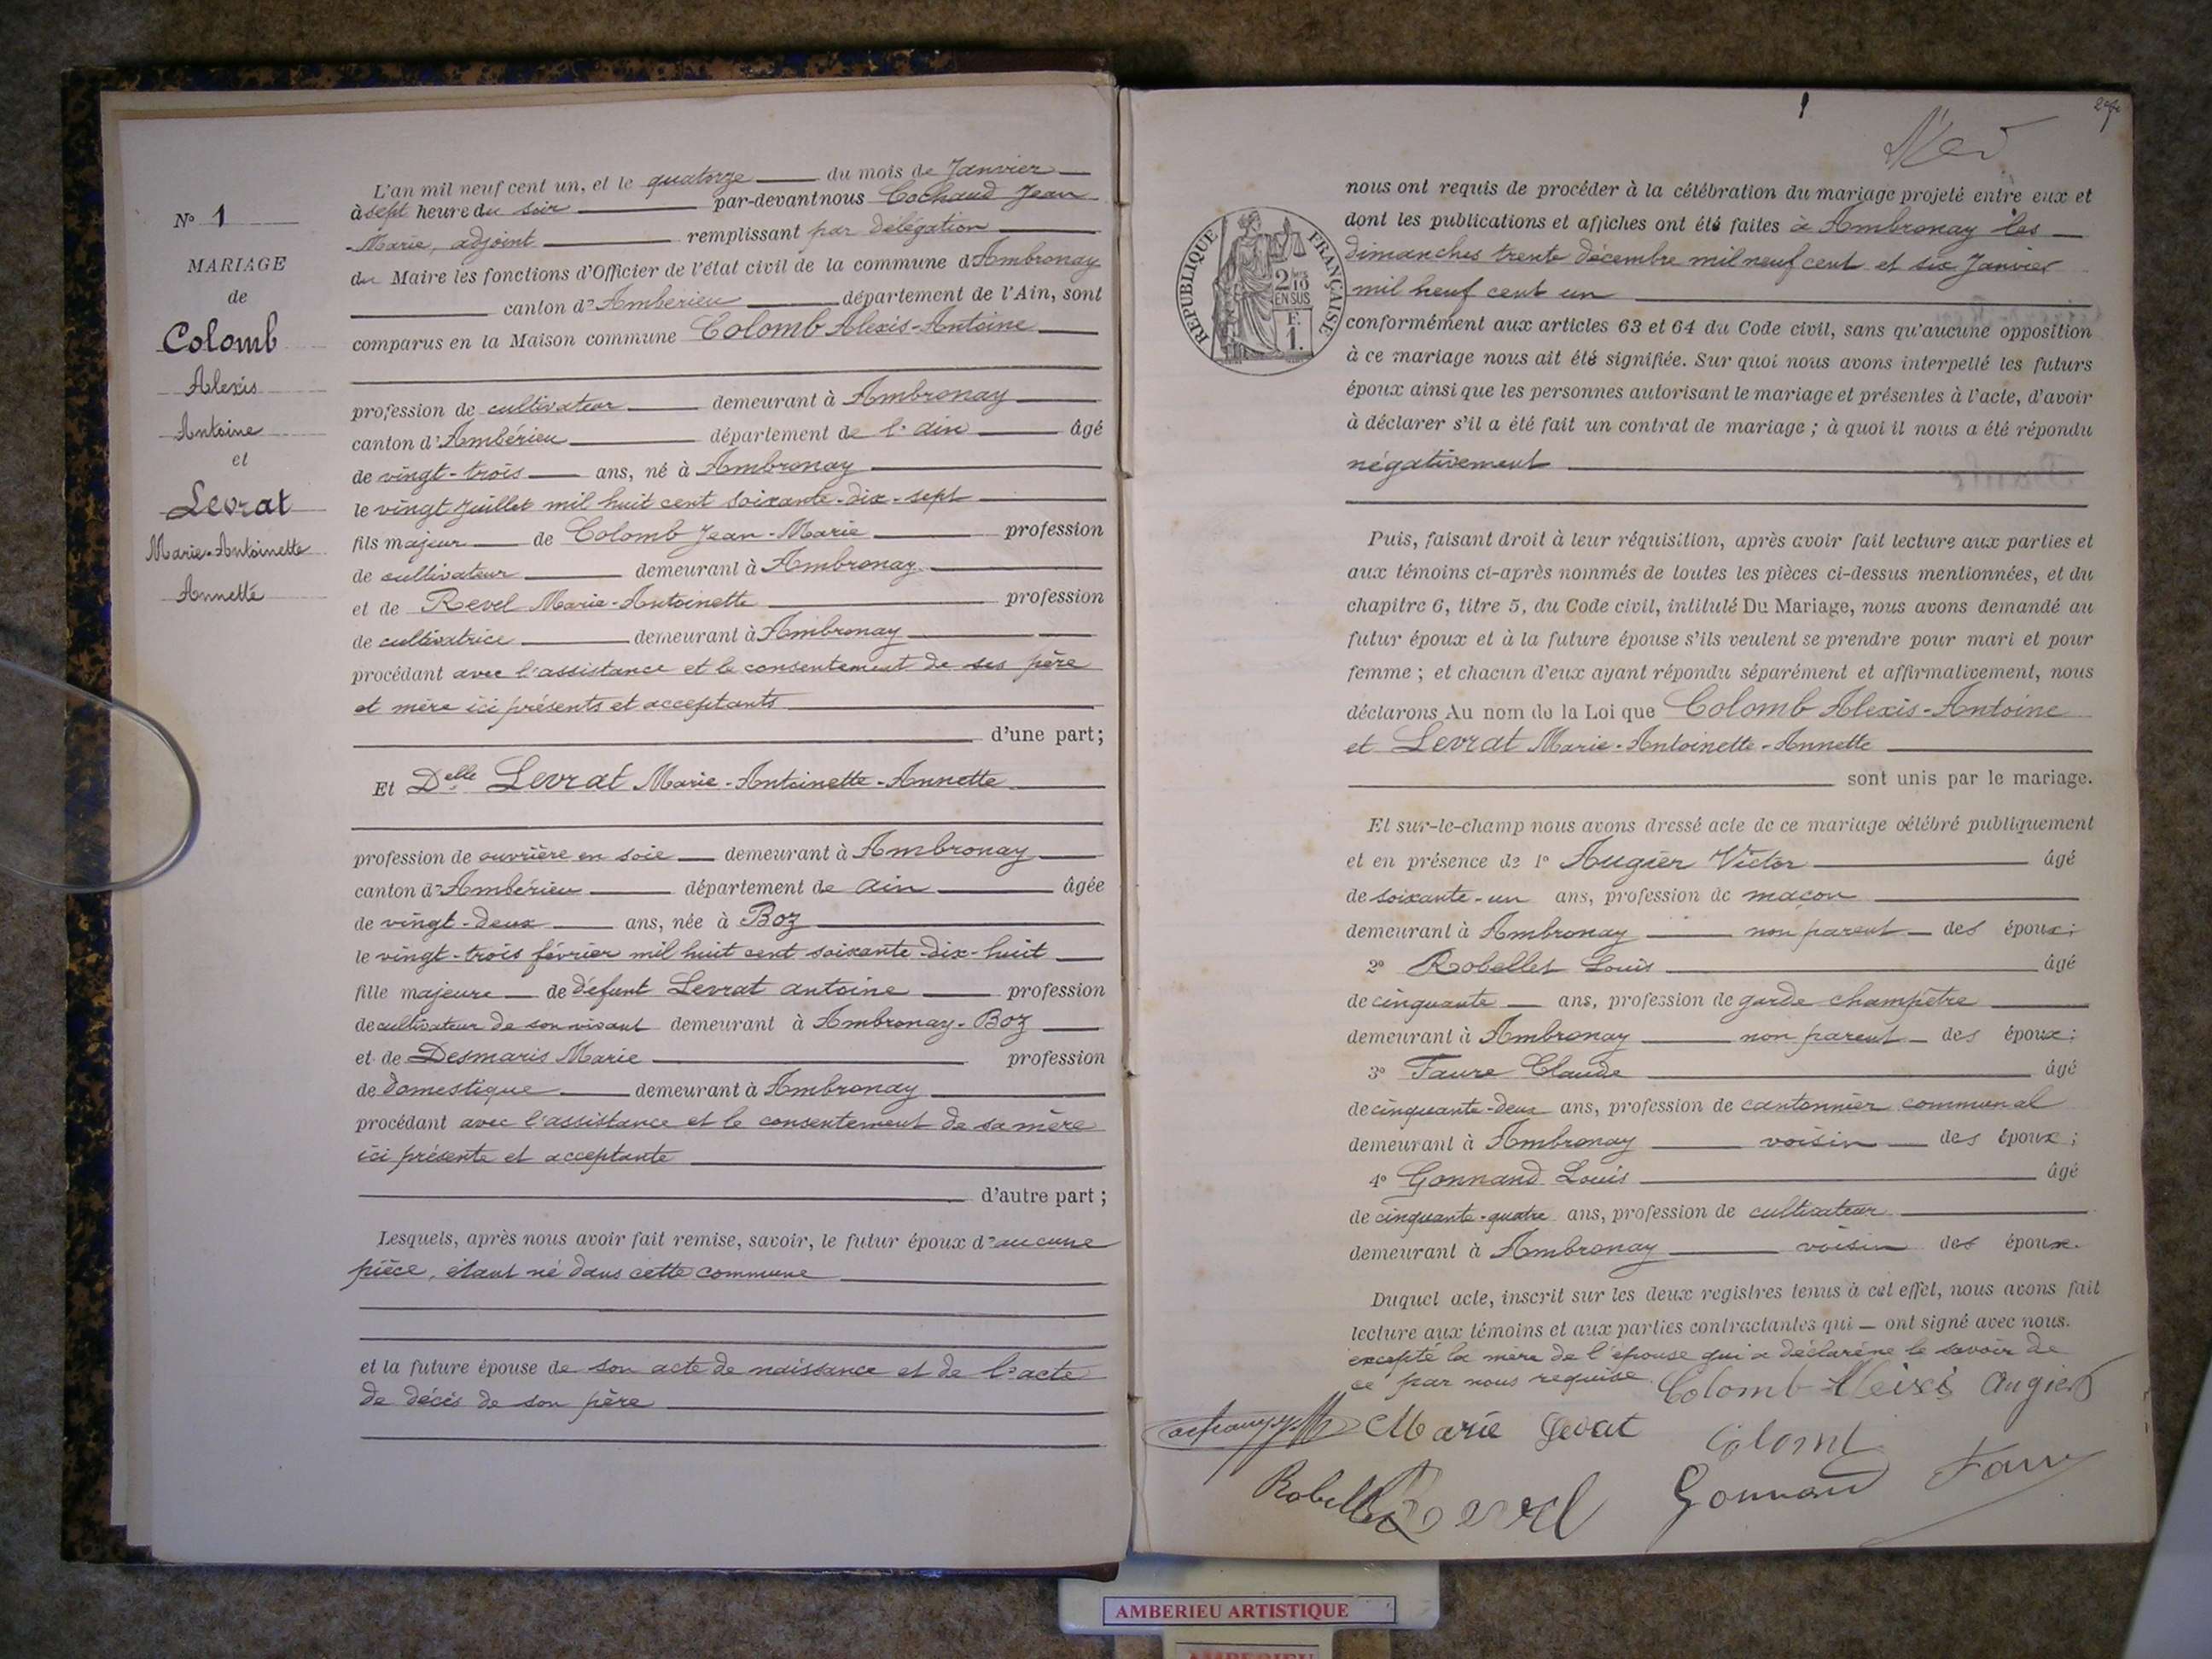 N° 1
MARIAGE
de
Colomb
Alexis
Antoine
et
Levrat
Marie-Antoinette
Annette
L'an mil neuf cent un, et le quatorze du mois de Janvier
à sept heure du soir par-devant nous Cochaud Jean
Marie, adjoint remplissant par délégation
du Maire les fonctions d'Officier de l'état civil de la commune d'Ambronay
canton d'Ambérieu département de l'Ain, sont
comparus en la Maison commune Colomb Alexis-Antoine
profession de cultivateur demeurant à Ambronay
canton d'Ambérieu département de l'ain âgé
de vingt-trois ans, né à Ambronay
le vingt Juillet mil huit cent soixante-dix-sept
fils majeur de Colomb Jean-Marie profession
de cultivateur demeurant à Ambronay
et de Revel Marie-Antoinette profession
de cultivatrice demeurant à Ambronay
procédant avec l'assistance et le consentement de ses père
et mère ici présents et acceptants
d'une part;
Et Delle Levrat Marie-Antoinette-Annette
profession de ouvrière en soie demeurant à Ambronay
canton d'Ambérieu département de ain âgée
de vingt-deux ans, née à Boz
le vingt-trois février mil huit cent soixante-dix-huit
fille majeure de défunt Levrat antoine profession
de cultivateur de son vivant demeurant à Ambronay-Boz
et de Desmaris Marie profession
de domestique demeurant à Ambronay
procédant avec l'assistance et le consentement de sa mère
ici présente et acceptante
d'autre part;
Lesquels, après nous avoir fait remise, savoir, le futur époux d'aucune
pièce, étant né dans cette commune
et la future épouse de son acte de naissance et de l'acte
de décès de son père
RÉPUBLIQUE FRANÇAISE
2/10 EN SUS
F. 1.
nous ont requis de procéder à la célébration du mariage projeté entre eux et
dont les publications et affiches ont été faites à Ambronay les
dimanches trente décembre mil neuf cent et six Janvier
mil neuf cent un
conformément aux articles 63 et 64 du Code civil, sans qu'aucune opposition
à ce mariage nous ait été signifiée. Sur quoi nous avons interpellé les futurs
époux ainsi que les personnes autorisant le mariage et présentes à l'acte, d'avoir
à déclarer s'il a été fait un contrat de mariage; à quoi il nous a été répondu
négativement
Puis, faisant droit à leur réquisition, après avoir fait lecture aux parties et
aux témoins ci-après nommés de toutes les pièces ci-dessus mentionnées, et du
chapitre 6, titre 5, du Code civil, intitulé Du Mariage, nous avons demandé au
futur époux et à la future épouse s'ils veulent se prendre pour mari et pour
femme; et chacun d'eux ayant répondu séparément et affirmativement, nous
déclarons Au nom de la Loi que Colomb Alexis-Antoine
et Levrat Marie-Antoinette-Annette
sont unis par le mariage.
Et sur-le-champ nous avons dressé acte de ce mariage célébré publiquement
et en présence de 1° Augier Victor âgé
de soixante-un ans, profession de maçon
demeurant à Ambronay non parent des époux;
2° Robellet Louis âgé
de cinquante ans, profession de garde champêtre
demeurant à Ambronay non parent des époux;
3° Faure Claude âgé
de cinquante-deux ans, profession de cantonnier communal
demeurant à Ambronay voisin des époux;
4° Gonnand Louis âgé
de cinquante-quatre ans, profession de cultivateur
demeurant à Ambronay voisin des époux.
Duquel acte, inscrit sur les deux registres tenus à cet effet, nous avons fait
lecture aux témoins et aux parties contractantes qui ont signé avec nous.
excepté la mère de l'épouse qui a déclaré ne le savoir de
ce par nous requise
Colomb Alexis Augier
Marie Levrat Colomb
Robellet Revel Gonnand Faure
AMBERIEU ARTISTIQUE
AMBERIEU